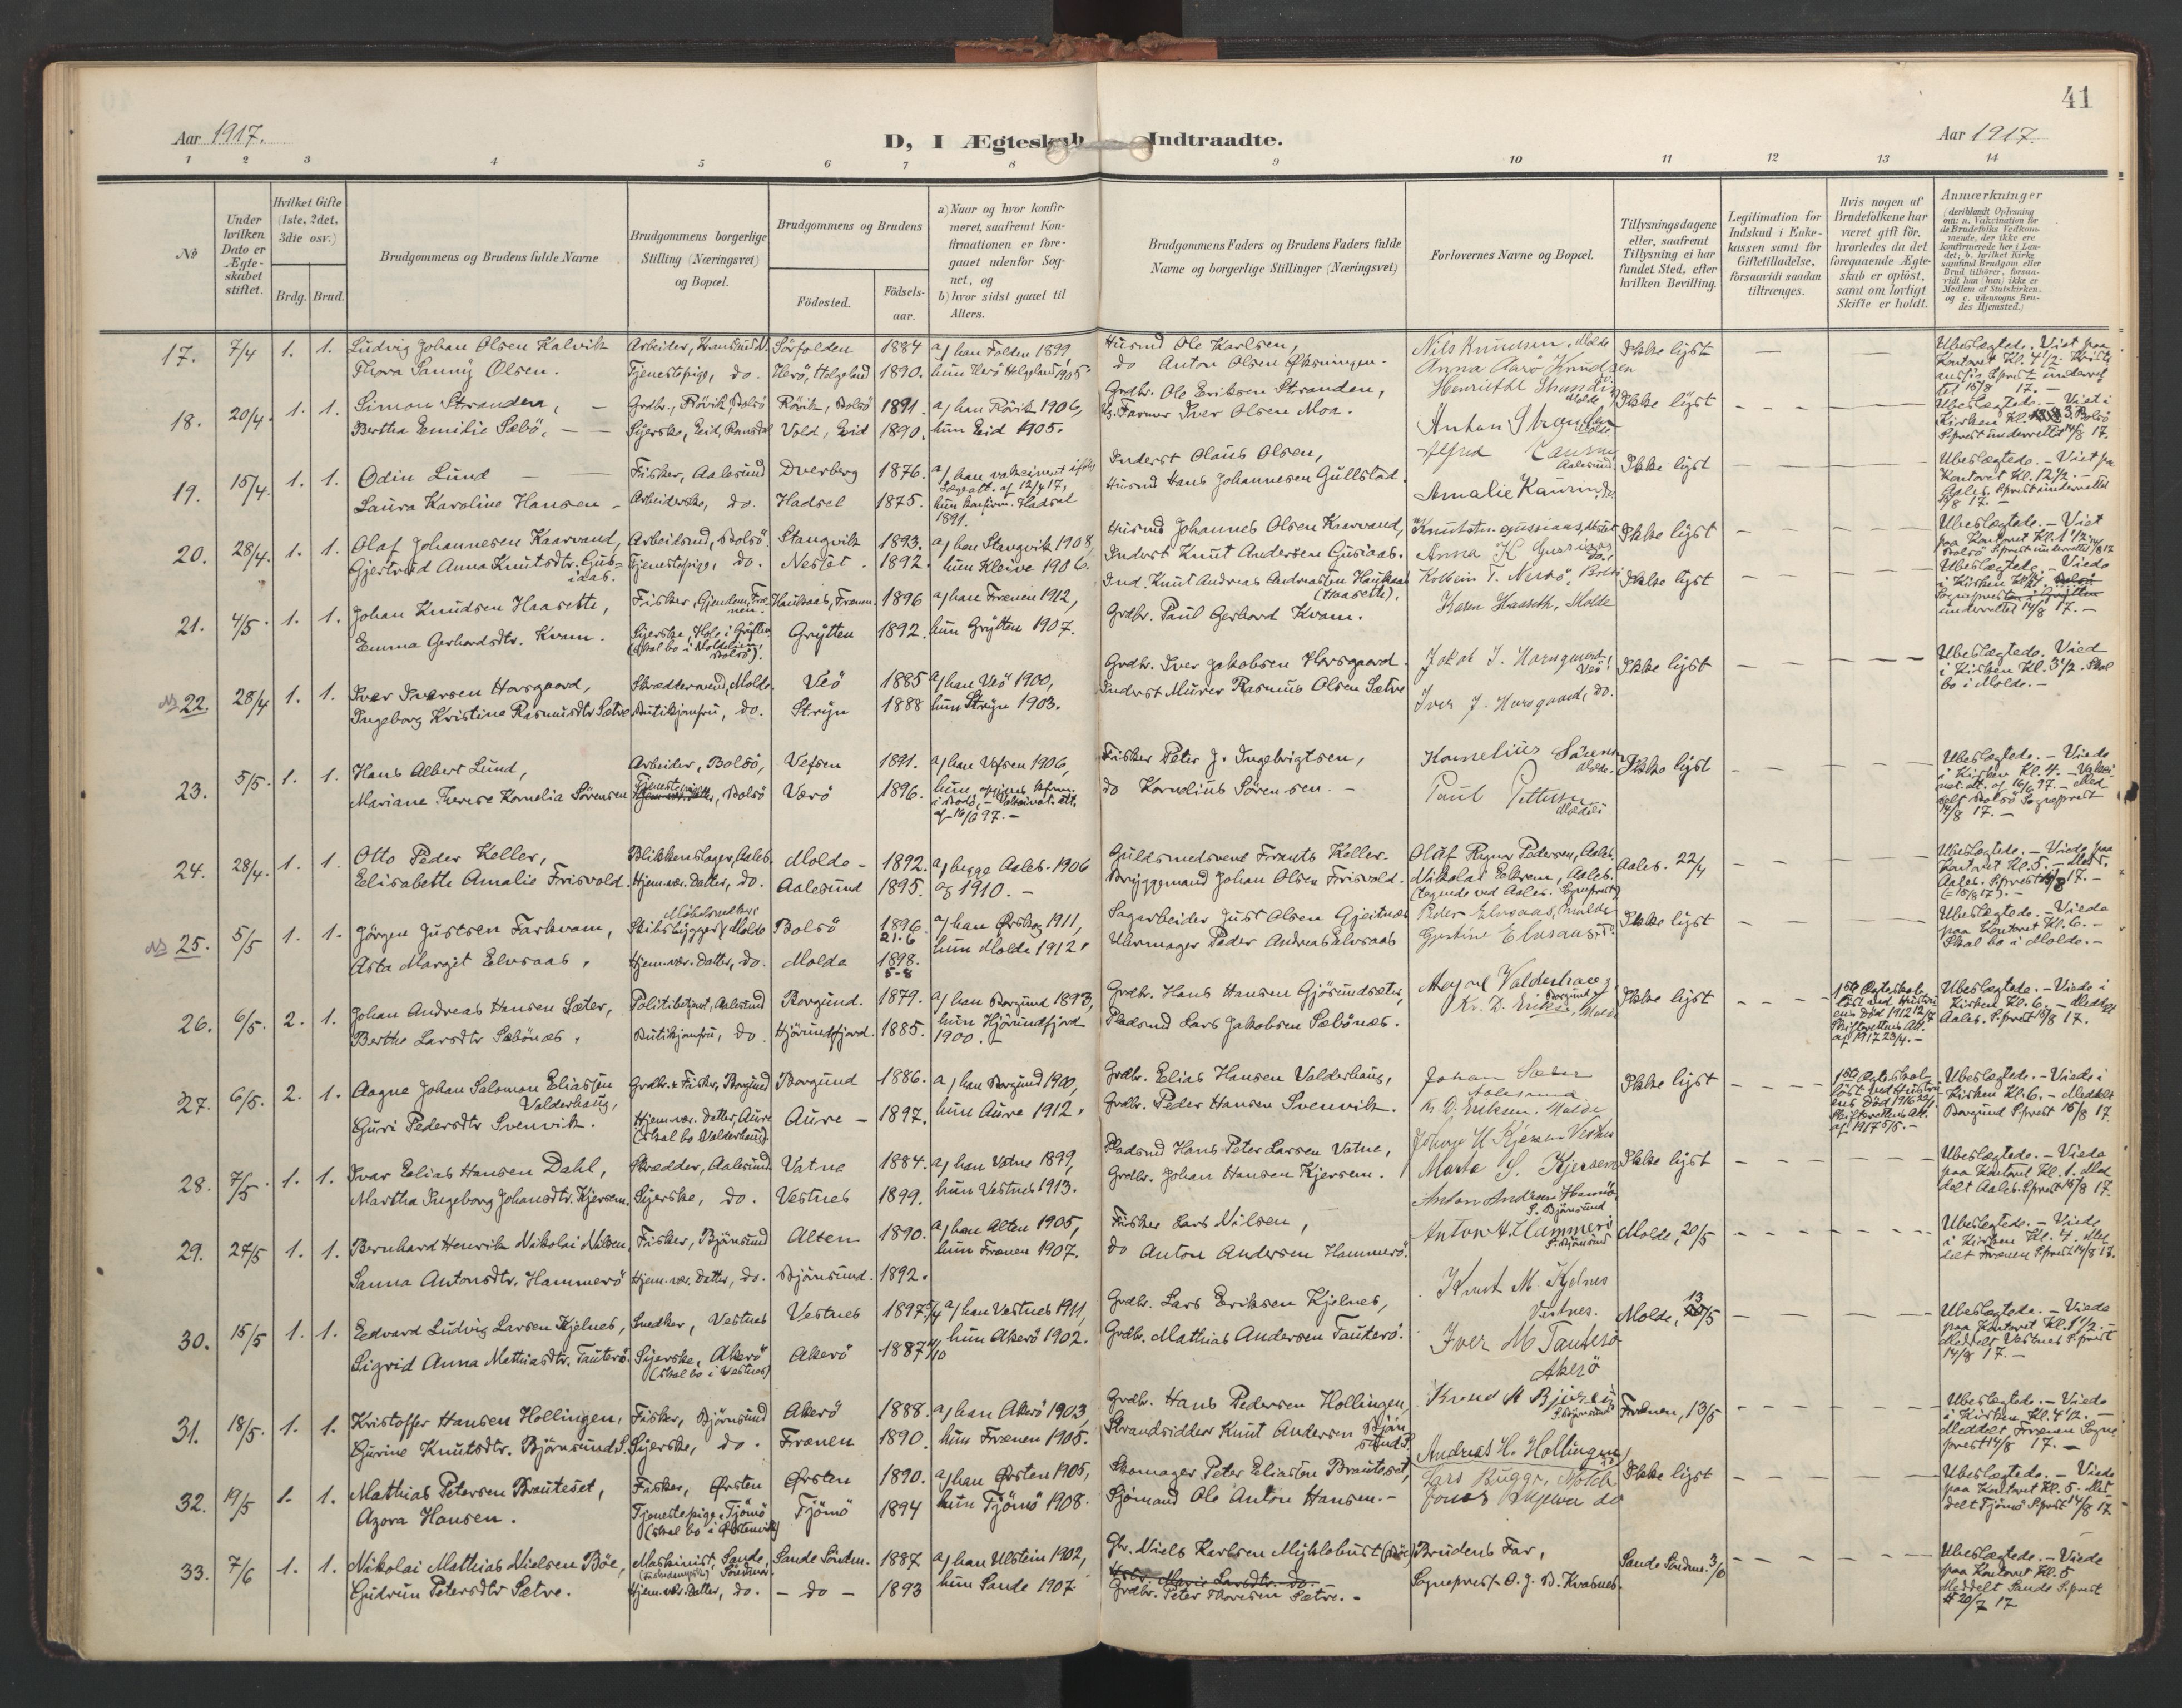 41
Aar 1917.
D, I Ægteskab Indtraadte.
Aar 1917.
1 2 3 4 5 6 7 8 9 10 11 12 13 14
No
Under hvilken Dato er Ægteskabet stiftet.
Hvilket Gifte (1ste, 2det, 3die osv.)
Brdg. Brud.
Brudgommens og Brudens fulde Navne
Brudgommens borgerlige Stilling (Næringsvei) og Bopæl.
Brudgommens og Brudens
Fødested.
Fødselsaar.
a) Naar og hvor konfirmeret, saafremt Konfirmationen er foregaaet udenfor Sognet, og
b) hvor sidst gaaet til Alters.
Brudgommens Faders og Brudens Faders fulde Navne og borgerlige Stillinger (Næringsvei)
Forlovernes Navne og Bopæl.
Tillysningsdagene eller, saafremt Tillysning ei har fundet Sted, efter hvilken Bevilling.
Legitimation for Indskud i Enkekassen samt for Giftetilladelse, forsaavidt saadan tiltrænges.
Hvis nogen af Brudefolkene har været gift før, hvorledes da det foregaaende Ægteskab er opløst, samt om lovligt Skifte er holdt.
Anmærkninger
(deriblandt Oplysning om: a. Vakcination for de Brudefolks Vedkommende, der ikke ere konfirmerede her i Landet; b. hvilket Kirkesamfund Brudgom eller Brud tilhører, forsaavidt han (hun) ikke er Medlem af Statskirken, og c. udensogns Brudes Hjemsted.)
17. 7/4 1. 1. Ludvig Johan Olsen Kalvik Arbeider, Sörfolden 1884 a/ han Folden 1899, Husmd Ole Karlsen, Nils Knudsen, Molde Ikke lyst — — Ubeslægtede. Viet paa
Thora Sanny Olsen. Tjenestepige, do. Herö, Helgeland 1890. hun Herö Helgeland 1905. do Anton Olsen Öksningen. Anna Aarö Knudsen Kontoret Kl. 4 1/2.
18. 20/4. 1. 1. Simon Stranden, Grdbr., Rövik, Bolsö Rövik, Bolsö 1891. a/ han Rövik 1906, Grdbr. Ole Eriksen Stranden, Ikke lyst Ubeslægtede. — Viet i
Bertha Emilie Sæbö, Syerske, Eid, Romsdal Vold, Eid 1890. hun Eid 1905. Farmer Iver Olsen Moa. Anton Stranden Molde. Kirken Kl. 3. Bolsö S.prest underrettet 14/8 17.
19. 15/4. 1. 1. Odin Lund Fisker, Aalesund Dverberg 1876. a/ han vakcineret ifölge Lægeatt. af 12/4 17, Inderst Olaus Olsen, Aalesund. Ikke lyst Ubeslægtede. — Viet paa
Laura Karoline Hansen Arbeiderske, do. Hadsel 1875. hun konfirm. Hadsel 1891. Husmd Hans Johannesen Gullstad. Amalie Kontoret Kl. 12 1/2. — Aales. S.prest underrettet 14/8 17. —
20. 28/4. 1. 1. Olaf Johannesen Kaarvand, Arbeidsmd, Bolsö. Stangvik 1893. a/ han Stangvik 1908, Husmd Johannes Olsen Kaarvand, Ikke lyst Ubeslægtede. — Viet
Gjertrud Anna Knutsdtr. Gusiaas. Tjenestepige, do. Nesset. 1892. hun Kleive 1906. Inderst Knut Andersen Gusiaas. Anna K Gusiaas do. paa Kontoret Kl. 1 1/2. Bolsö S.prest underrettet 14/8 17
21. 4/5. 1. 1. Johan Knudsen Haaseth, Fisker, Gjendem, Frænen. Haukaas, Frænen. 1896 a/ han Frænen 1912, Ind. Knut Andreas Andreassen Haukaas (Haaseth). Kolbein T. Nersö, Bolsö Ikke lyst Ubeslægtede. — Viede
Emma Gerhardsdtr. Kvam. Syerske, Hole i Grytten (skal bo i Moldelien, Bolsö). Grytten 1892. hun Grytten 1907. Grdbr. Paul Gerhard Kvam. Karen Haaseth, Molde underrettet 14/8 17. —
No 22. 28/4 1. 1. Ivar Iversen Horsgaard, Skræddersvend, Molde. Veö 1885 a/ han Veö 1900, Grdbr. Iver Jakobsen Horsgaard. Jakob I. Horsgaard, Veö! Ikke lyst Ubeslægtede. Vied
Ingeborg Kristine Rasmusdtr Sætre Butikjomfru, do. Stryn 1888 hun Stryn 1903. Inderst Murer Rasmus Olsen Sætre Iver J. Horsgaard, do. i Kirken Kl. 3 1/2. Skal bo i Molde. —
23. 5/5. 1. 1. Hans Albert Lund, Arbeider, Bolsö, Vefsen 1891. a/ han Vefsen 1906, Fisker Peter J. Ingebrigtsen, Kornelius Sörensen Molde. Ikke lyst Ubeslægtede. — Viede
Mariane Therese Kornelia Sörensen Tjenestepige, Bolsö Værö 1896. hun opgives konfirm. i Bodö, — Vakcinat. att. af 16/6 97. — do Kornelius Sörensen. — Paul Pettersen Moldeli i Kirken Kl. 4. — Vakcinat. att. af 16/6 97. — Meddelt Bolsö Sogneprest 14/8 17. —
24. 28/4. 1. 1. Otto Peder Keller, Blikkenslager, Aales. Molde — 1892. a/ begge Aales. 1906 Guldsmedsvend Frants Keller. Olaf Ragnv. Pedersen, Aales. Aales. 22/4 Ubeslægtede. — Viede paa
Elisabeth Amalie Frisvold. Hjem.vær. Datter, do. Aalesund 1895. og 1910. — Bryggemand Johan Olsen Frisvold. Nikolai Eikrem, Aales. (tegnede ved Aales. Sogneprest) Kontoret Kl. 5. — Medd. Aales. S.prest 15/8 17. —
No 25. 5/5 1. 1. Jörgen Justsen Farkvam, Møbelsnedker Skibsbygger, Molde Bolsö 1896. 21.6 a/ han Ørskog 1911, Sagarbeider Just Olsen Gjeitnæs Peder Elvsaas, Molde Ikke lyst Ubeslægtede. — Viede
Asta Margit Elvsaas, Hjem.vær. Datter, do. Molde 1898. 5-8 hun Molde 1912. Uhrmager Peder Andreas Elvsaas Gjertine Elvsaas, do. paa Kontoret Kl. 6. — Skal bo i Molde. —
26. 6/5. 2. 1. Johan Andreas Hansen Sæter, Politibetjent, Aalesund Borgund. 1879. a/ han Borgund 1893, Grdbr. Hans Hansen Gjösundsæter, Magne Valderhaug, Borgund Ikke lyst 1ste Ægteskab löst ved Hustruens Död 1912 12/7 Skifterettens Att. af 1917 23/4. — Ubeslægtede. — Viede i
Berthe Larsdtr Sæbönes, Butikjomfru, do Hjörundfjord. 1885. hun Hjörundfjord 1900. — Pladsmd Lars Jakobsen Sæbönæs. Kr. D. Eriksen, Molde Kirken Kl. 6. — Meddelt Aales. S.prest 15/8 17.
27. 6/5. 2. 1. Aagne Johan Salomon Eliassen Valderhaug, Grdbr. & Fisker, Borgund Borgund 1886. a/ han Borgund 1900, Grdbr. Elias Hansen Valderhaug, Johan Sæter Aalesund Ikke lyst 1ste Ægteskab löst ved Hustruens Död 1916 Skifterettens Att. af 1917 5/5. — Ubeslægtede. — Viede i
Guri Pedersdtr Svenvik. Hjem.vær. Datter, Aure (skal bo Valderhaug) Aure — 1897. hun Aure 1912. Grdbr. Peder Hansen Svenvik. Kr. D. Eriksen. Molde Kirken Kl. 6. — Meddelt Borgund S.prest 15/8 17.
28. 7/5. 1. 1. Ivar Elias Hansen Dahl, Skrædder, Aalesund Vatne 1884. a/ han Vatne 1899, Pladsmd Hans Peter Larsen Vatne, Johan H Kjersem Vestnes Ikke lyst Ubeslægtede. — Viede
Martha Ingeborg Johansdtr. Kjersem. Syerske, do. Vestnes 1899. hun Vestnes 1913. Grdbr. Johan Hansen Kjersem. Marta S. Kjersem paa Kontoret Kl. 1. Meddelt Aales. S.prest 15/8 17.
29. 27/5 1. 1. Bernhard Henrik Nikolai Nilsen, Fisker, Björnsund Alten 1890. a/ han Alten 1905, Fisker Lars Nilsen, Anton Andersen Hammerö, S. Björnsund Molde, 20/5 Ubeslægtede. — Viede
Sanna Antonsdtr. Hammerö Hjem.vær. Datter, do. Björnsund. 1892. hun Frænen 1907. do Anton Andersen Hammerö. Anton A. Hammerö S. Björnsund i Kirken Kl. 4. Meddelt Frænen S.prest 14/8 17.
30. 15/5 1. 1. Edvard Ludvig Larsen Kjelnes, Snedker, Vestnes Vestnes 1897 a/ han Vestnes 1911, Grdbr. Lars Eriksen Kjelnes, Knut M. Kjelnes Vestnes. Molde, 13/5 Ubeslægtede. — Viede
Sigrid Anna Mathiasdtr. Tauterö. Syerske, Akerö (skal bo i Vestnes) Akerö 1887 hun Akerö 1902. Grdbr. Mathias Andersen Tauterö. Iver M Tauterö Akerö paa Kontoret Kl. 1 1/2. — Meddelt Vestnes S.prest 14/8 17. —
31. 18/5. 1. 1. Kristoffer Hansen Hollingen, Fisker, Björnsund Akerö 1888. a/ han Akerö 1903, Grdbr. Hans Pedersen Hollingen, S. Björnsund Frænen, 13/5 Ubeslægtede. — Viede
Gurine Knutsdtr. Björnsund S. Syerske, do. Frænen 1890. hun Frænen 1905. Strandsidder Knut Andersen Björnsund S. Andreas H. Hollingen i Kirken Kl. 4 1/2. — Meddelt Frænen Sogneprest 14/8 17. —
32. 19/5 1. 1. Mathias Petersen Brauteset, Fisker, Ørsten Ørsten 1890. a/ han Ørsten 1905, Skomager Peter Eliassen Brauteset, Lars Bugge, Molde Ikke lyst Ubeslægtede. — Viede
Azora Hansen. Tjenestepige, Tjömö (skal bo i Ørstenvik) Tjömö 1894 hun Tjömö 1908. Sjömand Ole Anton Hansen. — Jonas do paa Kontoret Kl. 5. Meddelt Tjömö S.prest 14/8 17
33. 7/6 1. 1. Nikolai Mathias Nielsen Böe, Maskinist, Sande, Söndmör. Sande Söndm. 1887 a/ han Ulstein 1902, Gbr. Niels Karlsen Myklebust (Böe) Brudens Far, Sande Söndm. 3/6 Ubeslægtede. — Viede
Gudrun Petersdtr Sætre. Hjem.vær. Datter, do. — do — 1893 hun Sande 1907. Marie Larsdtr. do. Grdbr. Peter Thoresen Sætre. — Sogneprest O. J. B. Kvasnes. paa Kontoret Kl. 5 Meddelt Sande S.prest 20/7 17